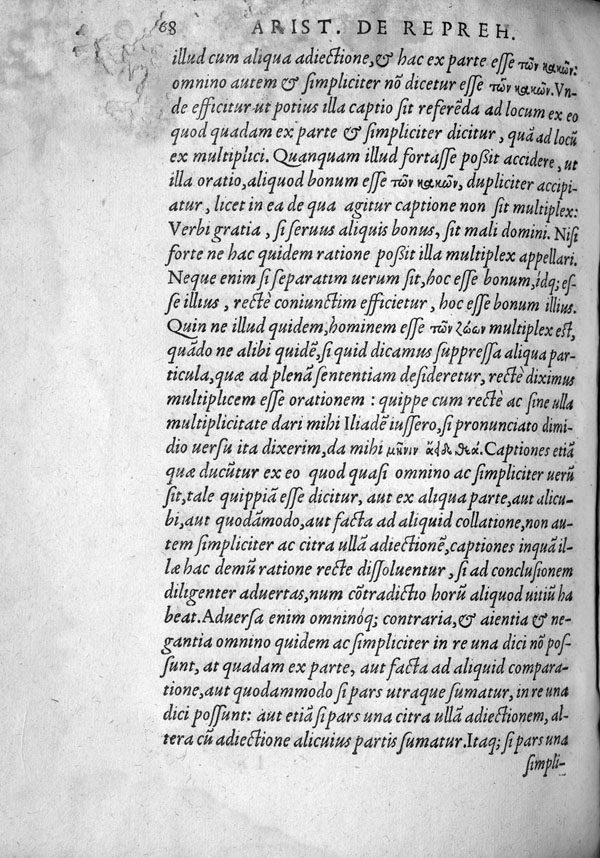 68 ARIST. DE REPREH.
illud cum aliqua adiectione,& hac ex parte esse τῶν κακῶν:
omnino autem & simpliciter nō dicetur esse τῶν κακῶν. Vn-
de efficitur ut potius illa captio sit referēda ad locum ex eo
quod quadam ex parte & simpliciter dicitur, quā ad locū
ex multiplici. Quanquam illud fortasse possit accidere, ut
illa oratio,aliquod bonum esse τῶν κακῶν, dupliciter accipi-
atur, licet in ea de qua agitur captione non sit multiplex:
Verbi gratia, si seruus aliquis bonus, sit mali domini. Nisi
forte ne hac quidem ratione possit illa multiplex appellari.
Neque enim si separatim uerum sit, hoc esse bonum, idq; es-
se illius, rectè coniunctim efficietur, hoc esse bonum illius.
Quin ne illud quidem, hominem esse τῶν ζώων multiplex est,
quādo ne alibi quidē, si quid dicamus suppressa aliqua par-
ticula, quæ ad plenā sententiam desideretur, rectè diximus
multiplicem esse orationem: quippe cum rectè ac sine ulla
multiplicitate dari mihi Iliadē iussero, si pronunciato dimi-
dio uersu ita dixerim, da mihi μῆνιν ἄειδε θεά. Captiones etiā
quæ ducūtur ex eo quod quasi omnino ac simpliciter uerū
sit, tale quippiā esse dicitur, aut ex aliqua parte, aut alicu-
bi, aut quodāmodo, aut facta ad aliquid collatione, non au-
tem simpliciter ac citra ullā adiectionē, captiones inquā il-
læ hac demū ratione recte dissoluentur, si ad conclusionem
diligenter aduertas, num cōtradictio horū aliquod uitiū ha
beat. Aduersa enim omninóq; contraria, & aientia & ne-
gantia omnino quidem ac simpliciter in re una dici nō pos-
sunt, at quadam ex parte, aut facta ad aliquid compara-
tione, aut quodammodo si pars utraque sumatur, in re una
dici possunt: aut etiā si pars una citra ullā adiectionem, al-
tera cū adiectione alicuius partis sumatur. Itaq; si pars una
simpli-